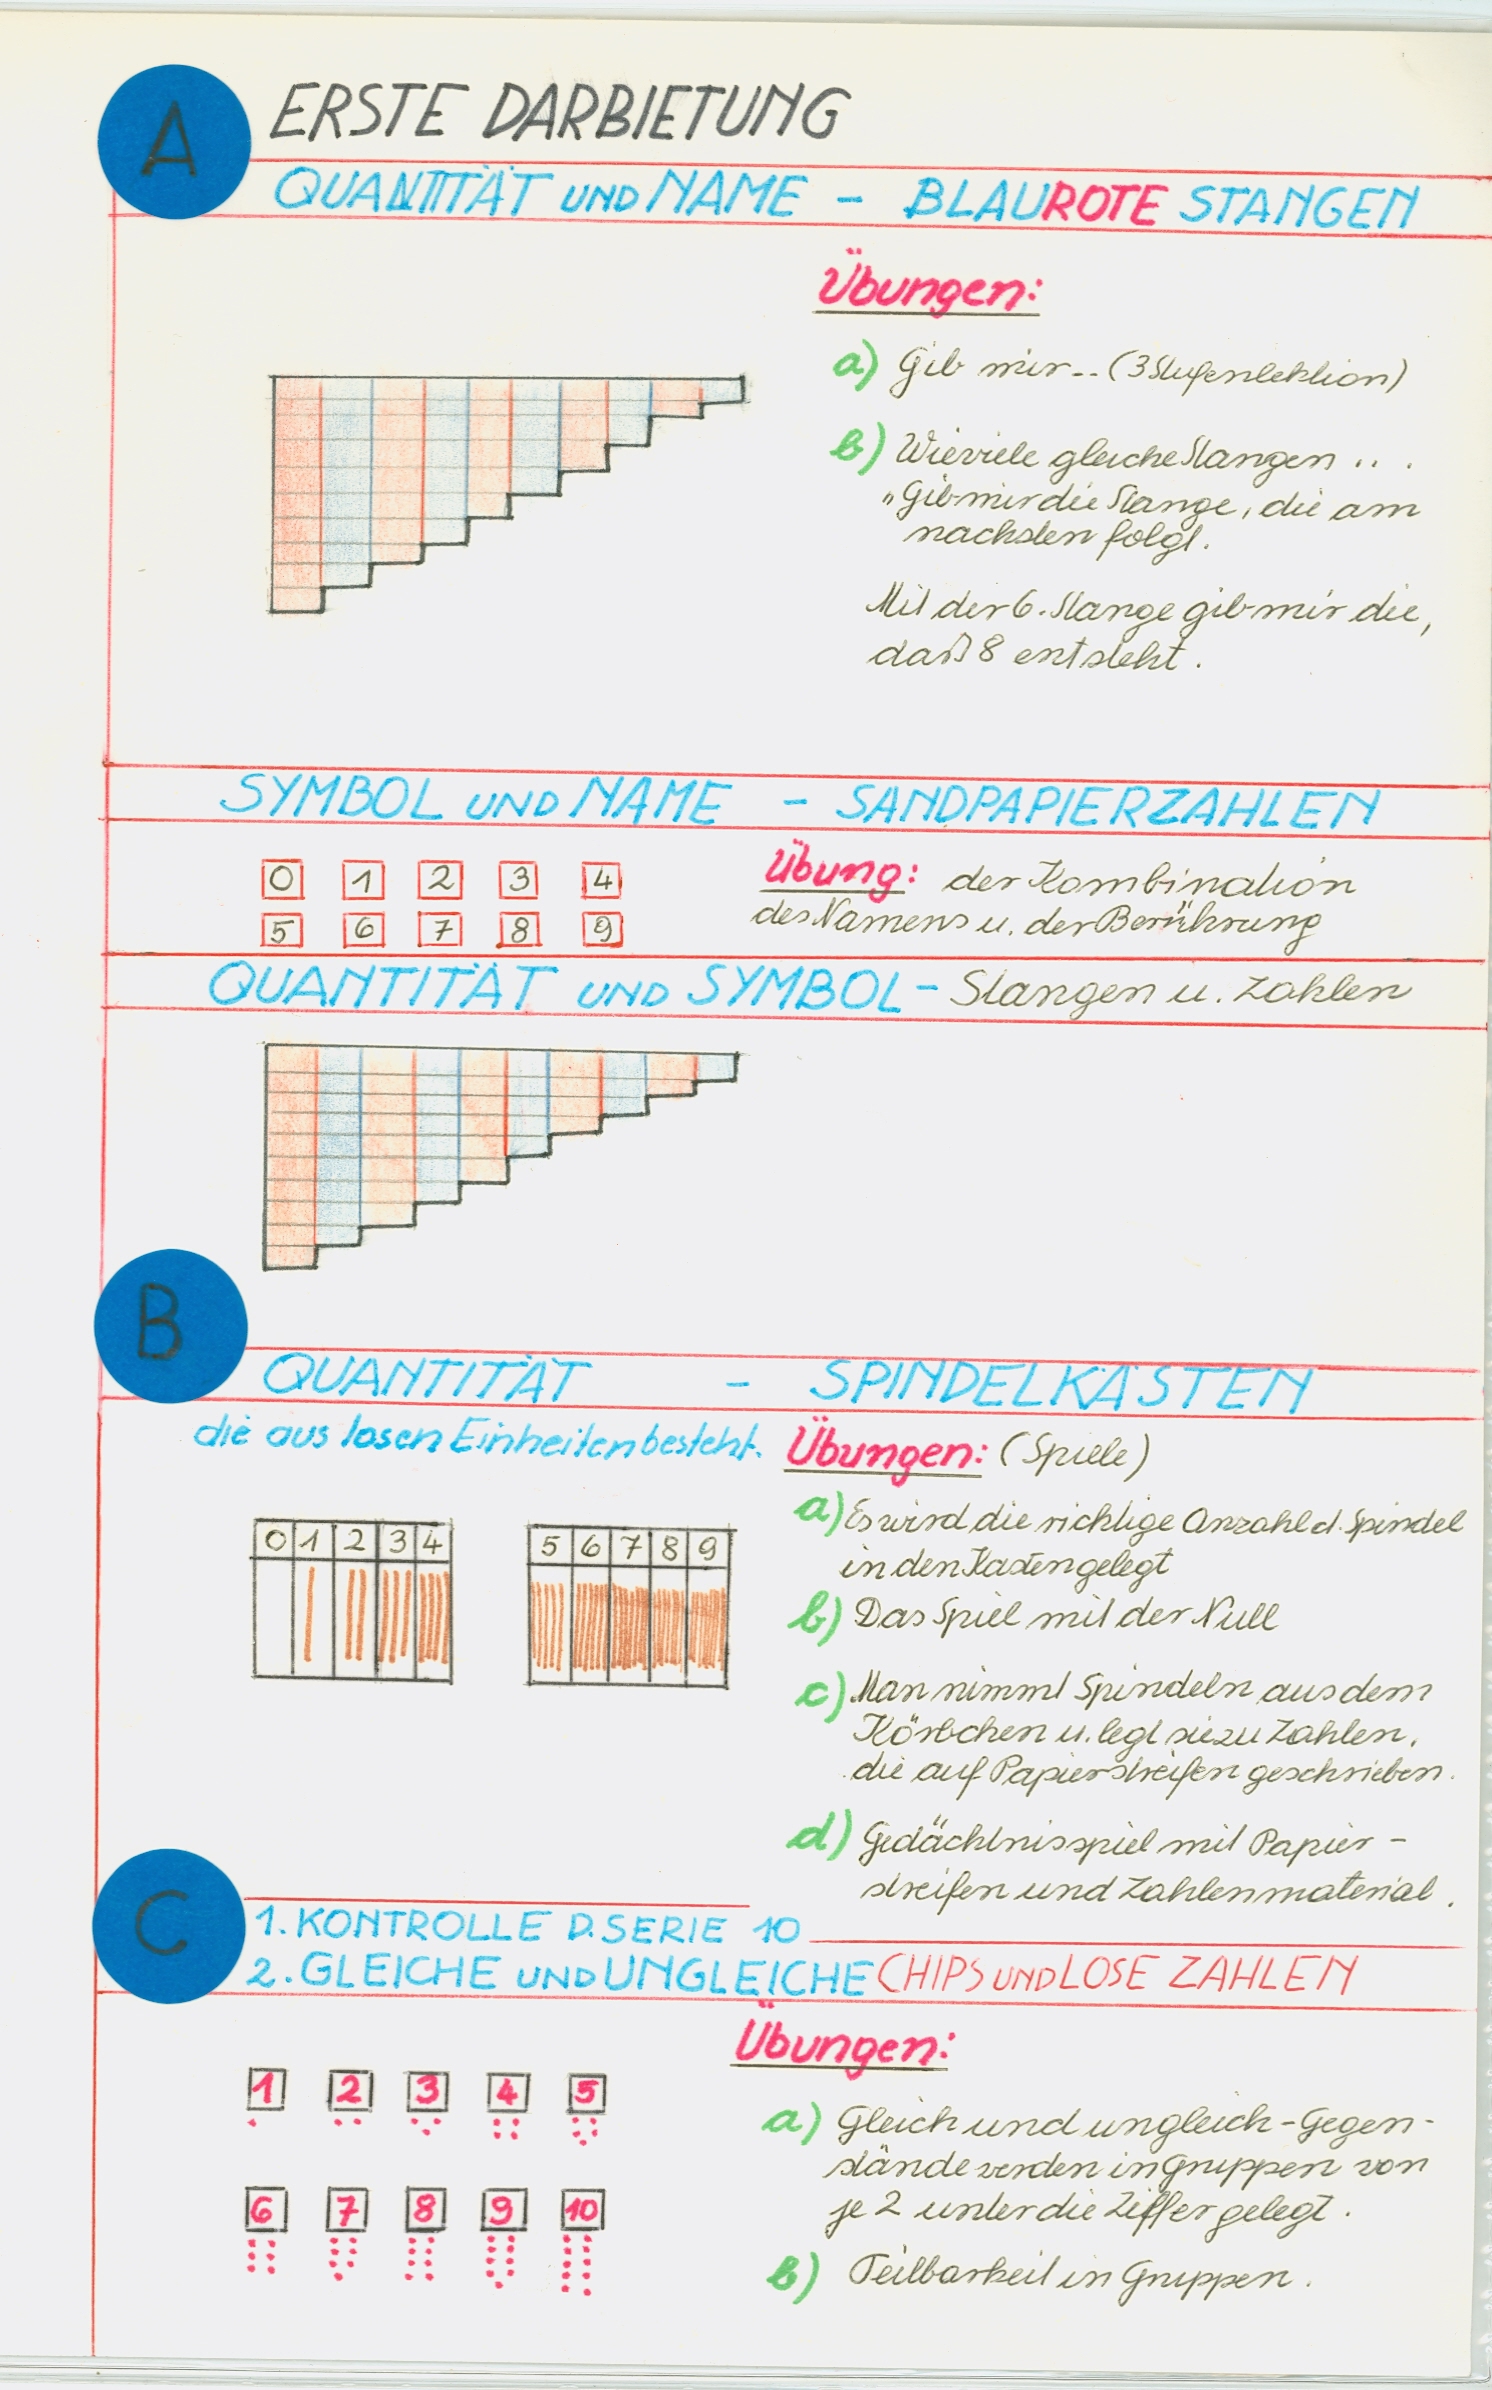 A
ERSTE DARBIETUNG
QUANTITÄT UND NAME - BLAUROTE STANGEN
Übungen:
a) Gib mir.. (3 Stufenlektion)
b) Wieviele gleiche Stangen .. .
"Gib mir die Stange, die am
nächsten folgt.
Mit der 6. Stange gib mir die,
daß 8 entsteht.
SYMBOL UND NAME - SANDPAPIERZAHLEN
0 1 2 3 4
5 6 7 8 9
Übung: der Kombination
des Namens u. der Berührung
QUANTITÄT UND SYMBOL - Stangen u. Zahlen
B
QUANTITÄT - SPINDELKÄSTEN
die aus losen Einheiten besteht.
0 1 2 3 4
5 6 7 8 9
Übungen: (Spiele)
a) Es wird die richtige Anzahl d. Spindel
in den Kasten gelegt
b) Das Spiel mit der Null
c) Man nimmt Spindeln aus dem
Körbchen u. legt sie zu Zahlen,
die auf Papierstreifen geschrieben.
d) Gedächtnisspiel mit Papier-
streifen und Zahlenmaterial.
C
1. KONTROLLE D. SERIE 10
2. GLEICHE UND UNGLEICHE CHIPS UND LOSE ZAHLEN
1 2 3 4 5
6 7 8 9 10
Übungen:
a) Gleich und ungleich - Gegen-
stände werden in Gruppen von
je 2 unter die Ziffer gelegt.
b) Teilbarkeit in Gruppen.